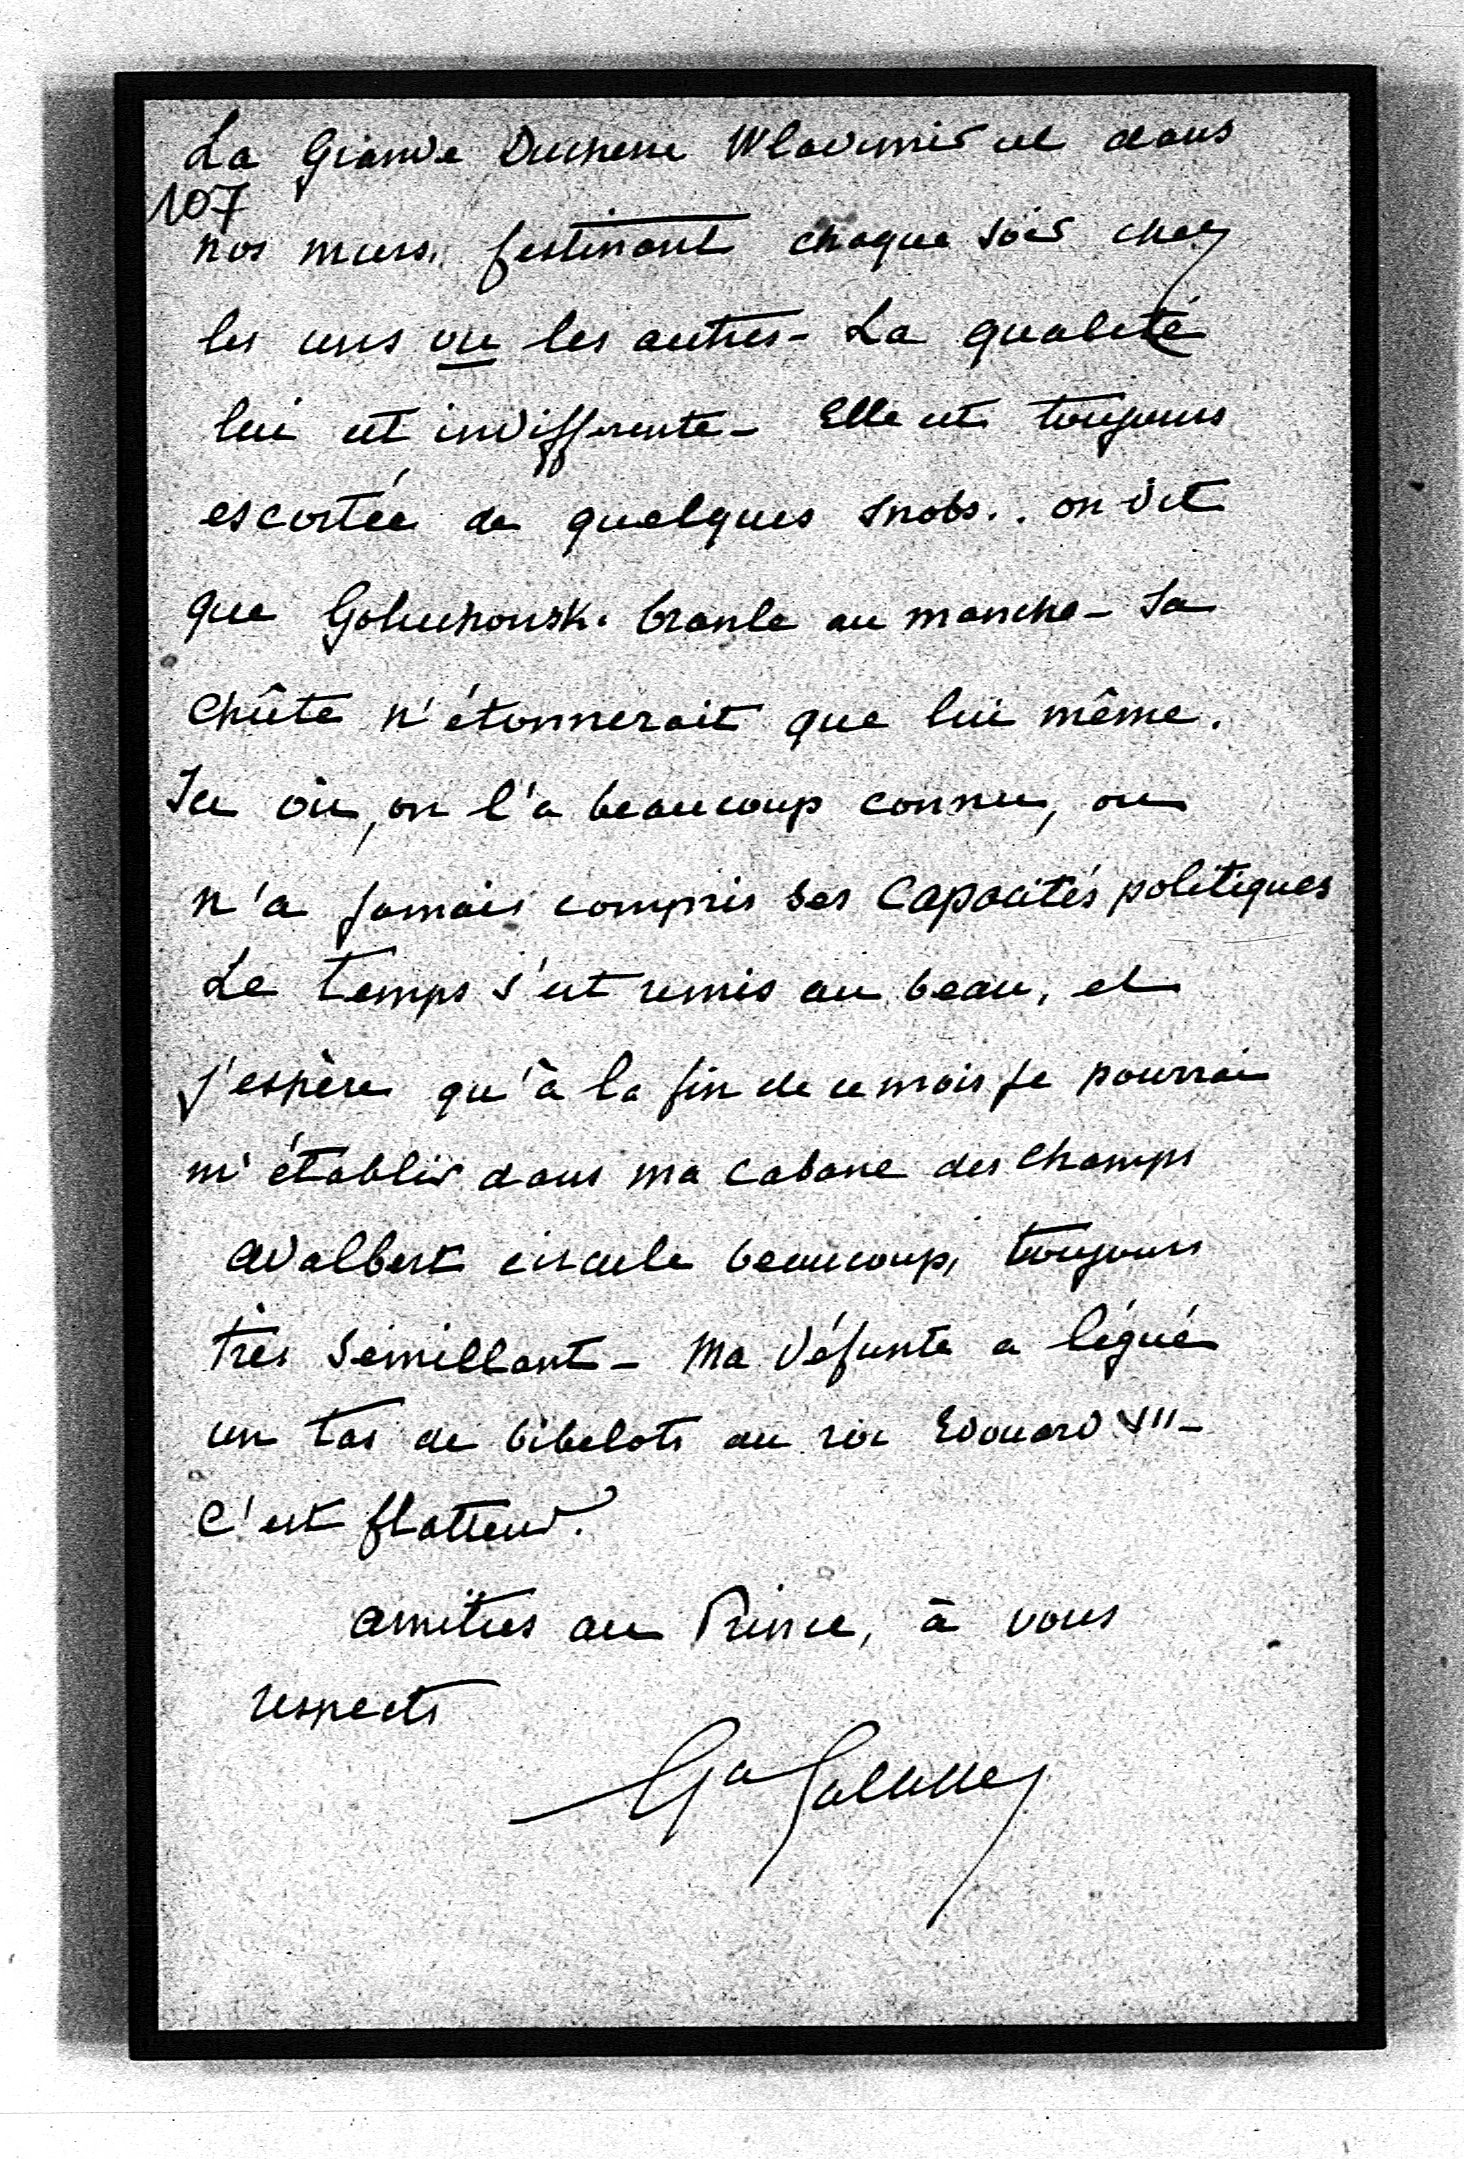 La Grande Duchesse Wladimir est dans
107
nos murs, festinant chaque soir chez
les uns ou les autres - La qualité
lui est indifférente - Elle est toujours
escortée de quelques snobs.. on dit
que Goluchowski branle au manche - Sa
chûte n'étonnerait que lui même.
Ici où, on l'a beaucoup connu, on
n'a jamais compris ses capacités politiques
Le temps s'est remis au beau, et
j'espère qu'à la fin de ce mois je pourrai
m'établir dans ma cabane des champs
Adalbert circule beaucoup, toujours
très sémillant - Ma défunte a légué
un tas de bibelots au roi Edouard VII -
C'est flatteur.
amitiés au Prince, à vous
respects
Ga Galliffet